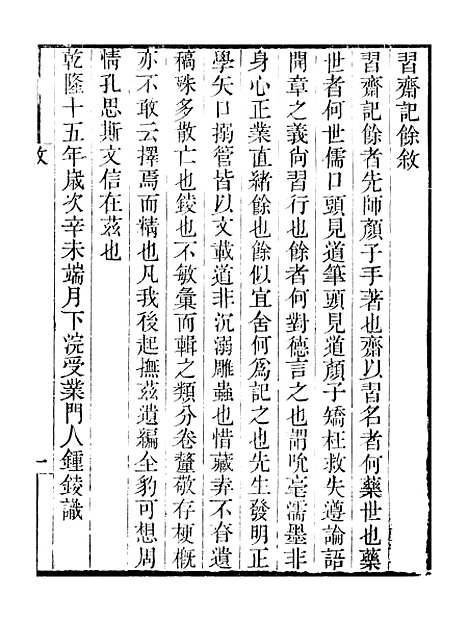 習齋記餘敘
習齋記餘者先師顏子手著也齋以習名者何藥世也藥
世者何世儒口頭見道筆頭見道顏子矯枉救失遵論語
開章之義尚習行也餘者何對德言之也謂吮毫濡墨非
身心正業直緒餘也餘似宜舍何為記之也先生發明正
學矢口搦管皆以文載道非沉溺雕蟲也惜藏弆不眘遺
稿殊多散亡也錂也不敏彙而輯之類分卷釐敬存梗概
亦不敢云擇焉而精也凡我後起撫茲遺編全豹可想周
情孔思斯文信在茲也
乾隆十五年歲次辛未端月下浣受業門人鍾錂識
敘
一